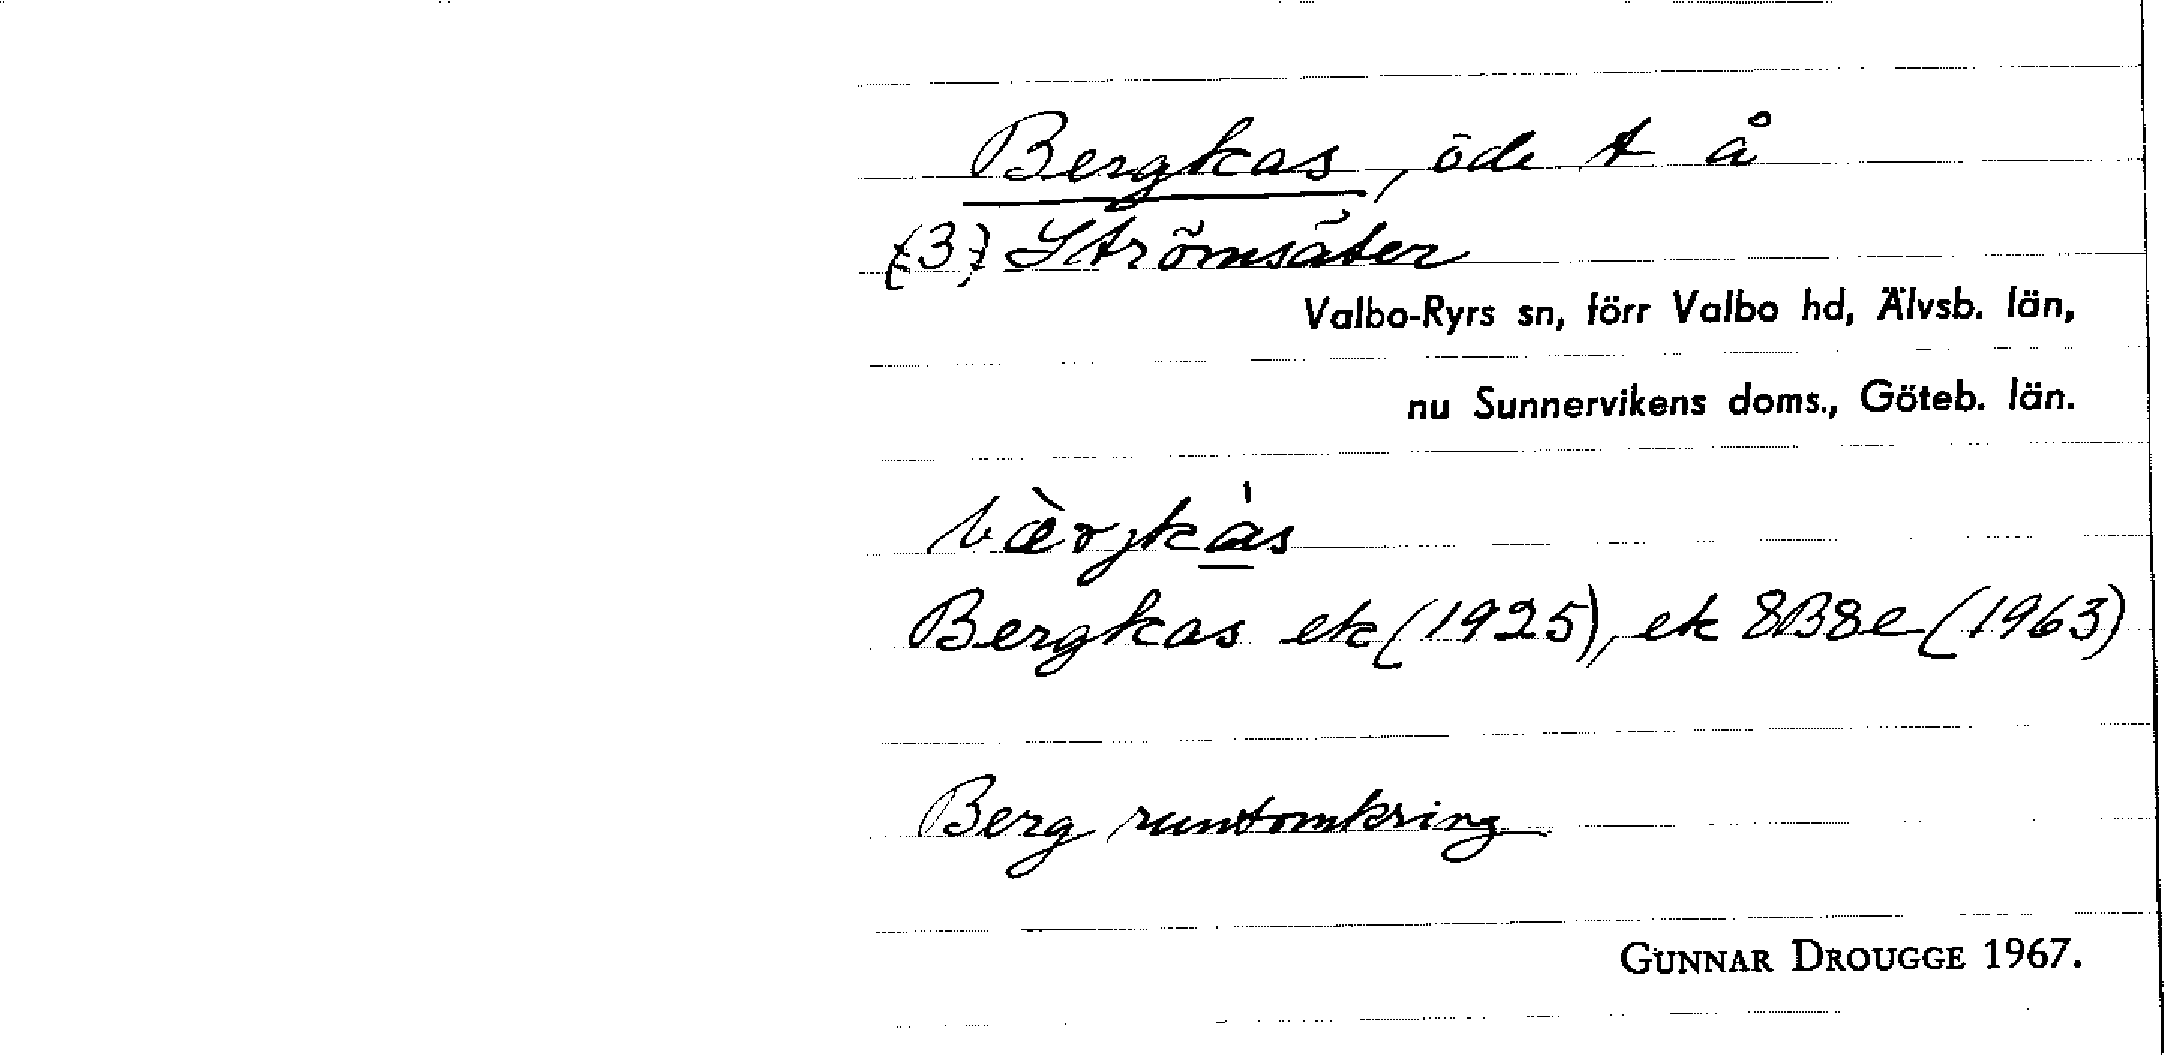 Bergkas, öde t å
(3) Strömsäter
Valbo-Ryrs sn, förr Valbo hd, Älvsb. län,
nu Sunnervikens doms., Göteb. län.
bærjkàs
Bergkas ek (1925), ek 8B8e (1963)
Berg runtomkring
GUNNAR DROUGGE 1967.